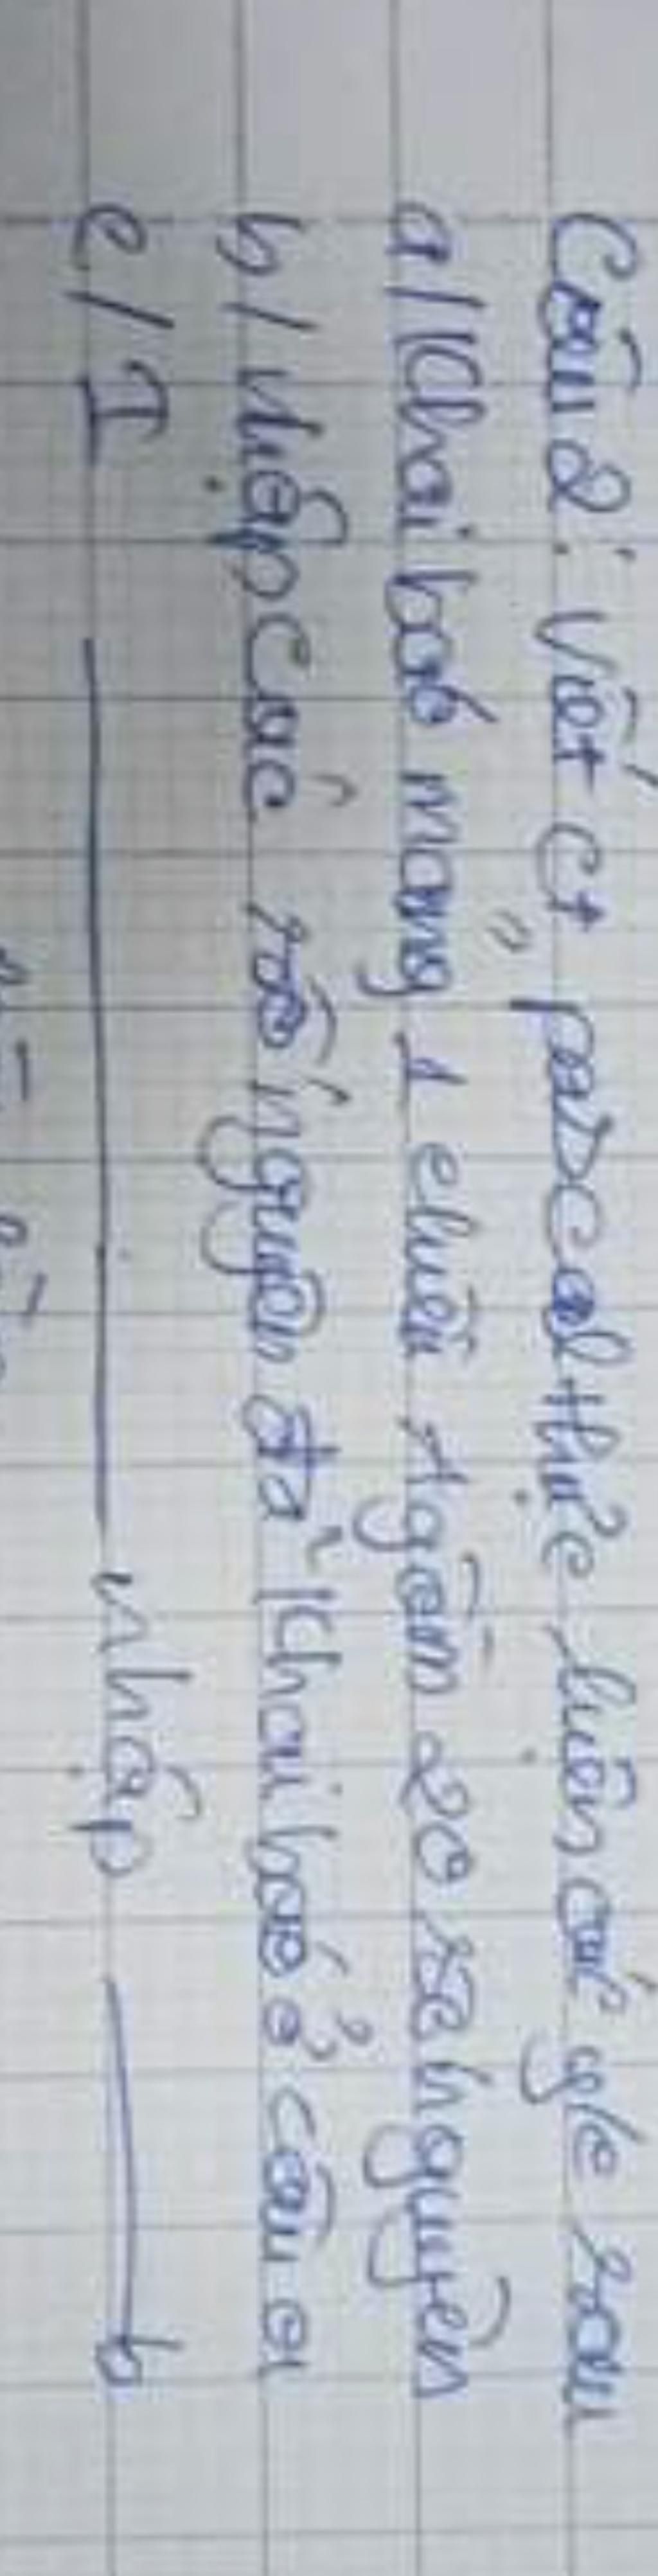 Câu 2: Viết ct pascal thực hiện các y/c sau
a/ Khai báo mảng 1 chiều A gồm 20 số nguyên
b/ nhập các số nguyên đã khai báo ở câu a
c/ I nhập b